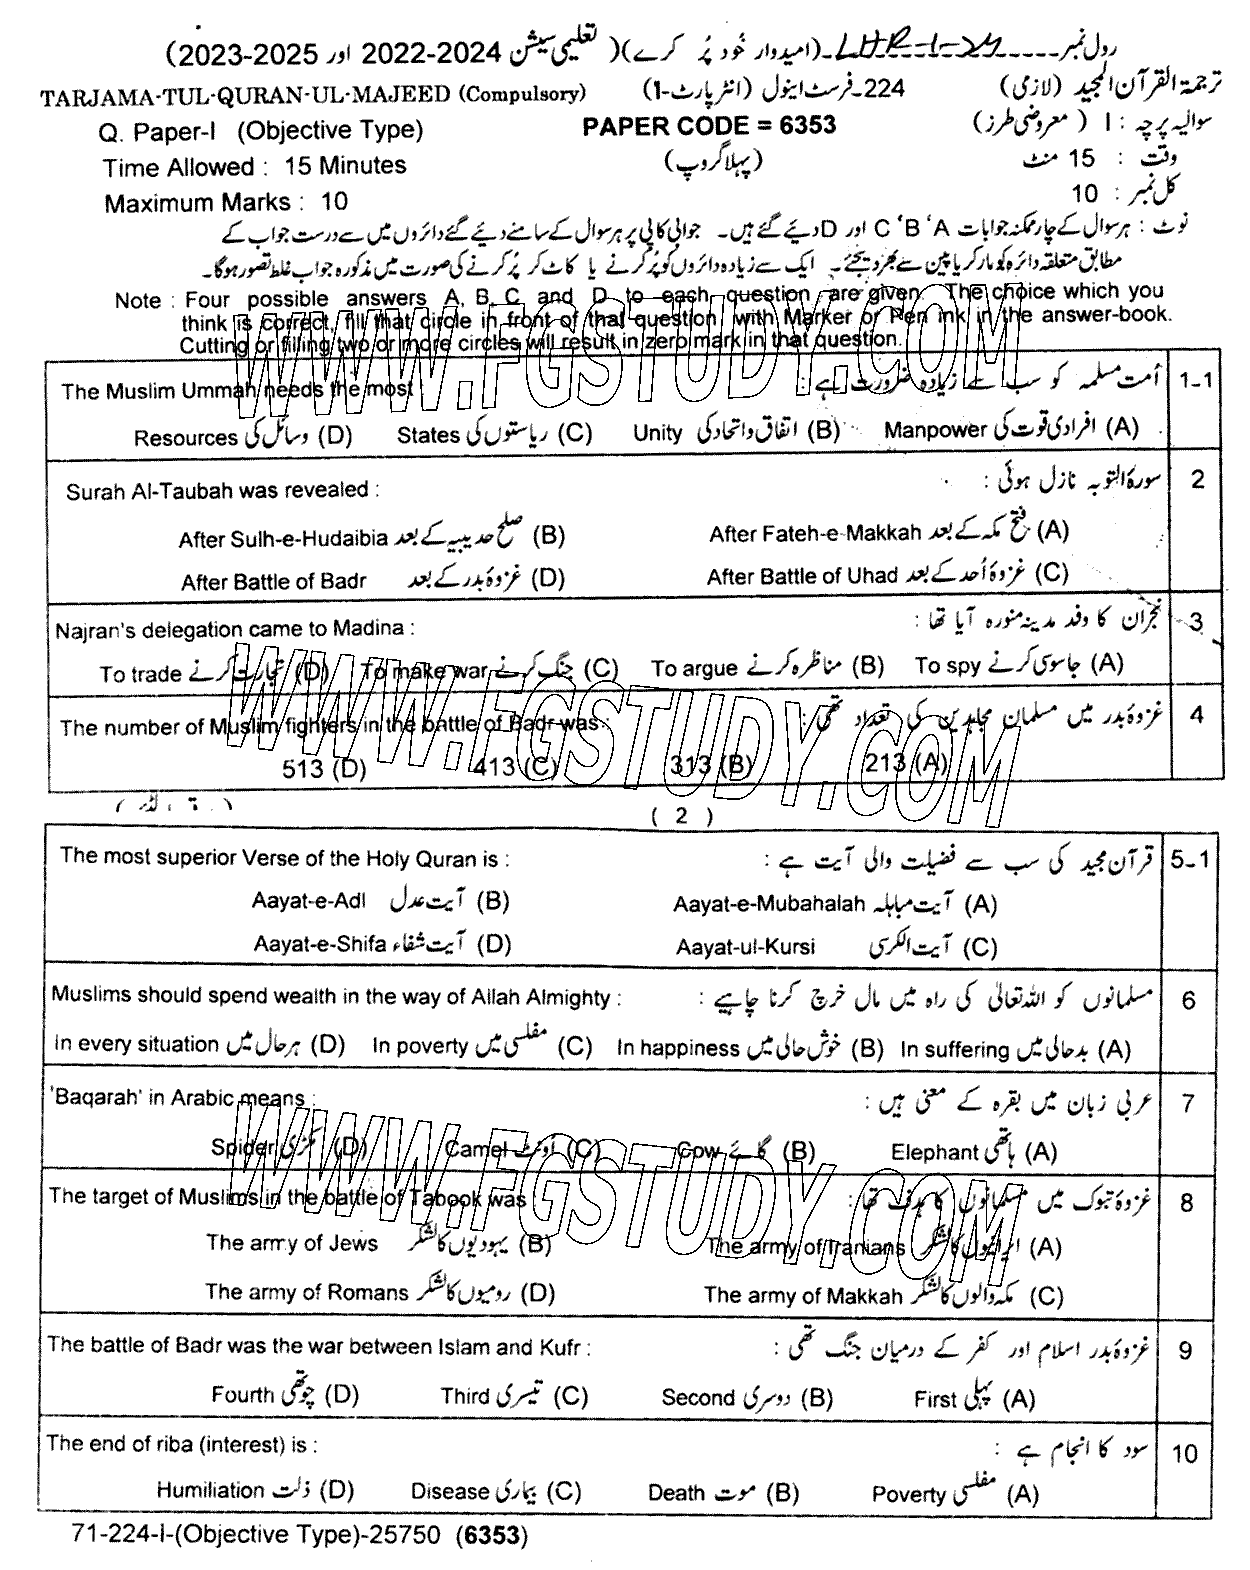 رول نمبر LHR-1-24 (امیدوار خود پُر کرے) (تعلیمی سیشن 2022-2024 اور 2023-2025)
TARJAMA-TUL-QURAN-UL-MAJEED (Compulsory) 224-فرسٹ اینول (انٹر پارٹ-1) ترجمۃ القرآن المجید (لازمی)
Q. Paper-I (Objective Type) PAPER CODE = 6353 سوالیہ پرچہ : I (معروضی طرز)
Time Allowed : 15 Minutes (پہلا گروپ) وقت : 15 منٹ
Maximum Marks : 10 کل نمبر : 10
نوٹ : ہر سوال کے چار ممکنہ جوابات A ‘B ‘C اور D دیئے گئے ہیں۔ جوابی کاپی پر ہر سوال کے سامنے دیئے گئے دائروں میں سے درست جواب کے
مطابق متعلقہ دائرہ کو مارکر یا پین سے بھر دیجئے۔ ایک سے زیادہ دائروں کو پُر کرنے یا کاٹ کر پُر کرنے کی صورت میں مذکورہ جواب غلط تصور ہوگا۔
Note : Four possible answers A, B, C and D to each question are given. The choice which you
think is correct, fill that circle in front of that question with Marker or Pen ink in the answer-book.
Cutting or filling two or more circles will result in zero mark in that question.
WWW.FGSTUDY.COM
The Muslim Ummah needs the most اُمت مسلمہ کو سب سے زیادہ ضرورت ہے : 1-1
Resources وسائل کی (D) States ریاستوں کی (C) Unity اتفاق و اتحاد کی (B) Manpower افرادی قوت کی (A)
Surah Al-Taubah was revealed : سورۃ التوبہ نازل ہوئی : 2
After Sulh-e-Hudaibia صلح حدیبیہ کے بعد (B) After Fateh-e-Makkah فتح مکہ کے بعد (A)
After Battle of Badr غزوۂ بدر کے بعد (D) After Battle of Uhad غزوۂ اُحد کے بعد (C)
Najran's delegation came to Madina : نجران کا وفد مدینہ منورہ آیا تھا : 3
To trade تجارت کرنے (D) To make war جنگ کرنے (C) To argue مناظرہ کرنے (B) To spy جاسوسی کرنے (A)
WWW.FGSTUDY.COM
The number of Muslim fighters in the battle of Badr was : غزوۂ بدر میں مسلمان مجاہدین کی تعداد تھی : 4
513 (D) 413 (C) 313 (B) 213 (A)
( 2 )
The most superior Verse of the Holy Quran is : قرآن مجید کی سب سے فضیلت والی آیت ہے : 5-1
Aayat-e-Adl آیت عدل (B) Aayat-e-Mubahalah آیت مباہلہ (A)
Aayat-e-Shifa آیت شفاء (D) Aayat-ul-Kursi آیت الکرسی (C)
Muslims should spend wealth in the way of Allah Almighty : مسلمانوں کو اللہ تعالیٰ کی راہ میں مال خرچ کرنا چاہیے : 6
In every situation ہر حال میں (D) In poverty مفلسی میں (C) In happiness خوش حالی میں (B) In suffering بدحالی میں (A)
'Baqarah' in Arabic means : عربی زبان میں بقرہ کے معنی ہیں : 7
Spider مکڑی (D) Camel اونٹ (C) Cow گائے (B) Elephant ہاتھی (A)
WWW.FGSTUDY.COM
The target of Muslims in the battle of Tabook was غزوۂ تبوک میں مسلمانوں کا ہدف تھا : 8
The army of Jews یہودیوں کا لشکر (B) The army of Iranians ایرانیوں کا لشکر (A)
The army of Romans رومیوں کا لشکر (D) The army of Makkah مکہ والوں کا لشکر (C)
The battle of Badr was the war between Islam and Kufr : غزوۂ بدر اسلام اور کفر کے درمیان جنگ تھی : 9
Fourth چوتھی (D) Third تیسری (C) Second دوسری (B) First پہلی (A)
The end of riba (interest) is : سود کا انجام ہے : 10
Humiliation ذلت (D) Disease بیماری (C) Death موت (B) Poverty مفلسی (A)
71-224-I-(Objective Type)-25750 (6353)